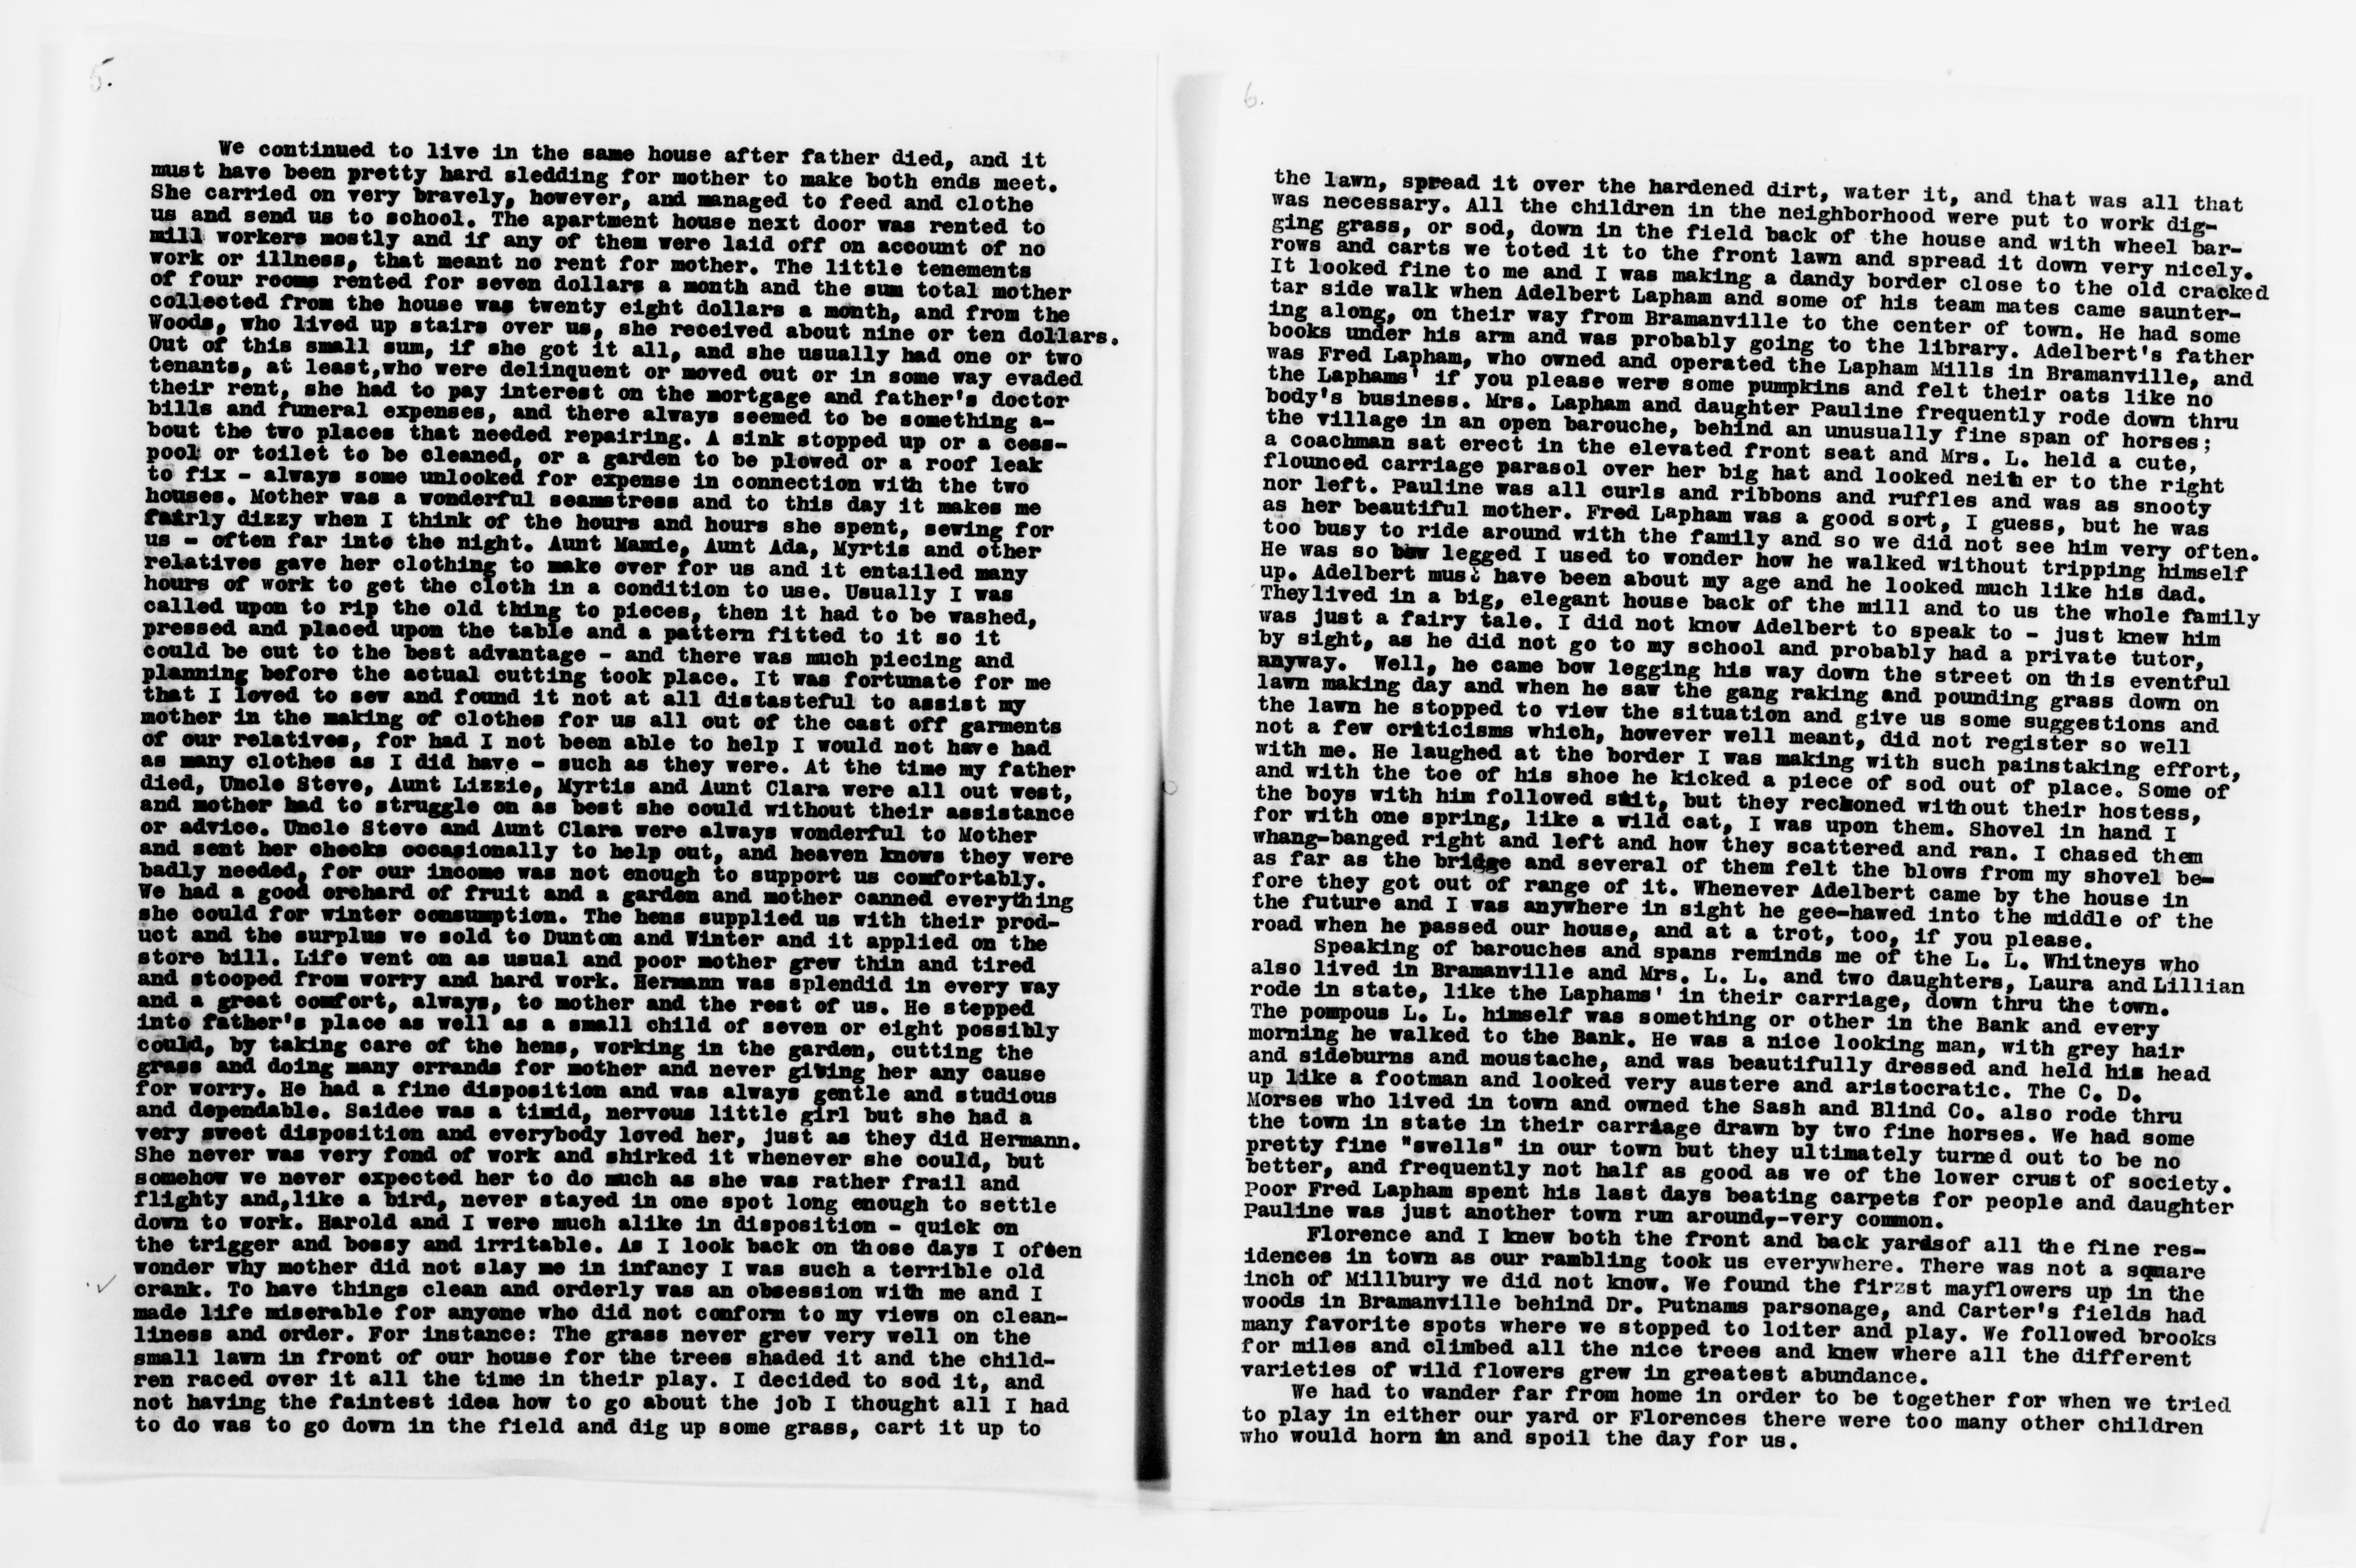 5.
We continued to live in the same house after father died, and it
must have been pretty hard sledding for mother to make both ends meet.
She carried on very bravely, however, and managed to feed and clothe
us and send us to school. The apartment house next door was rented to
mill workers mostly and if any of them were laid off on account of no
work or illness, that meant no rent for mother. The little tenements
of four rooms rented for seven dollars a month and the sum total mother
collected from the house was twenty eight dollars a month, and from the
Woods, who lived up stairs over us, she received about nine or ten dollars.
Out of this small sum, if she got it all, and she usually had one or two
tenants, at least,who were delinquent or moved out or in some way evaded
their rent, she had to pay interest on the mortgage and father's doctor
bills and funeral expenses, and there always seemed to be something a-
bout the two places that needed repairing. A sink stopped up or a cess-
pool or toilet to be cleaned, or a garden to be plowed or a roof leak
to fix - always some unlooked for expense in connection with the two
houses. Mother was a wonderful seamstress and to this day it makes me
fairly dizzy when I think of the hours and hours she spent, sewing for
us - often far into the night. Aunt Mamie, Aunt Ada, Myrtis and other
relatives gave her clothing to make over for us and it entailed many
hours of work to get the cloth in a condition to use. Usually I was
called upon to rip the old thing to pieces, then it had to be washed,
pressed and placed upon the table and a pattern fitted to it so it
could be cut to the best advantage - and there was much piecing and
planning before the actual cutting took place. It was fortunate for me
that I loved to sew and found it not at all distasteful to assist my
mother in the making of clothes for us all out of the cast off garments
of our relatives, for had I not been able to help I would not have had
as many clothes as I did have - such as they were. At the time my father
died, Uncle Steve, Aunt Lizzie, Myrtis and Aunt Clara were all out west,
and mother had to struggle on as best she could without their assistance
or advice. Uncle Steve and Aunt Clara were always wonderful to Mother
and sent her checks occasionally to help out, and heaven knows they were
badly needed, for our income was not enough to support us comfortably.
We had a good orchard of fruit and a garden and mother canned everything
she could for winter consumption. The hens supplied us with their prod-
uct and the surplus we sold to Dunton and Winter and it applied on the
store bill. Life went on as usual and poor mother grew thin and tired
and stooped from worry and hard work. Hermann was splendid in every way
and a great comfort, always, to mother and the rest of us. He stepped
into father's place as well as a small child of seven or eight possibly
could, by taking care of the hens, working in the garden, cutting the
grass and doing many errands for mother and never giving her any cause
for worry. He had a fine disposition and was always gentle and studious
and dependable. Saidee was a timid, nervous little girl but she had a
very sweet disposition and everybody loved her, just as they did Hermann.
She never was very fond of work and shirked it whenever she could, but
somehow we never expected her to do much as she was rather frail and
flighty and,like a bird, never stayed in one spot long enough to settle
down to work. Harold and I were much alike in disposition - quick on
the trigger and bossy and irritable. As I look back on those days I often
wonder why mother did not slay me in infancy I was such a terrible old
crank. To have things clean and orderly was an obsession with me and I
made life miserable for anyone who did not conform to my views on clean-
liness and order. For instance: The grass never grew very well on the
small lawn in front of our house for the trees shaded it and the child-
ren raced over it all the time in their play. I decided to sod it, and
not having the faintest idea how to go about the job I thought all I had
to do was to go down in the field and dig up some grass, cart it up to
6.
the lawn, spread it over the hardened dirt, water it, and that was all that
was necessary. All the children in the neighborhood were put to work dig-
ging grass, or sod, down in the field back of the house and with wheel bar-
rows and carts we toted it to the front lawn and spread it down very nicely.
It looked fine to me and I was making a dandy border close to the old cracked
tar side walk when Adelbert Lapham and some of his team mates came saunter-
ing along, on their way from Bramanville to the center of town. He had some
books under his arm and was probably going to the library. Adelbert's father
was Fred Lapham, who owned and operated the Lapham Mills in Bramanville, and
the Laphams' if you please were some pumpkins and felt their oats like no
body's business. Mrs. Lapham and daughter Pauline frequently rode down thru
the village in an open barouche, behind an unusually fine span of horses;
a coachman sat erect in the elevated front seat and Mrs. L. held a cute,
flounced carriage parasol over her big hat and looked neith er to the right
nor left. Pauline was all curls and ribbons and ruffles and was as snooty
as her beautiful mother. Fred Lapham was a good sort, I guess, but he was
too busy to ride around with the family and so we did not see him very often.
He was so bow legged I used to wonder how he walked without tripping himself
up. Adelbert must have been about my age and he looked much like his dad.
Theylived in a big, elegant house back of the mill and to us the whole family
was just a fairy tale. I did not know Adelbert to speak to - just knew him
by sight, as he did not go to my school and probably had a private tutor,
anyway. Well, he came bow legging his way down the street on this eventful
lawn making day and when he saw the gang raking and pounding grass down on
the lawn he stopped to view the situation and give us some suggestions and
not a few criticisms which, however well meant, did not register so well
with me. He laughed at the border I was making with such painstaking effort,
and with the toe of his shoe he kicked a piece of sod out of place. Some of
the boys with him followed suit, but they reckoned without their hostess,
for with one spring, like a wild cat, I was upon them. Shovel in hand I
whang-banged right and left and how they scattered and ran. I chased them
as far as the bridge and several of them felt the blows from my shovel be-
fore they got out of range of it. Whenever Adelbert came by the house in
the future and I was anywhere in sight he gee-hawed into the middle of the
road when he passed our house, and at a trot, too, if you please.
Speaking of barouches and spans reminds me of the L. L. Whitneys who
also lived in Bramanville and Mrs. L. L. and two daughters, Laura and Lillian
rode in state, like the Laphams' in their carriage, down thru the town.
The pompous L. L. himself was something or other in the Bank and every
morning he walked to the Bank. He was a nice looking man, with grey hair
and sideburns and moustache, and was beautifully dressed and held his head
up like a footman and looked very austere and aristocratic. The C. D.
Morses who lived in town and owned the Sash and Blind Co. also rode thru
the town in state in their carriage drawn by two fine horses. We had some
pretty fine "swells" in our town but they ultimately turned out to be no
better, and frequently not half as good as we of the lower crust of society.
Poor Fred Lapham spent his last days beating carpets for people and daughter
Pauline was just another town run around,-very common.
Florence and I knew both the front and back yardsof all the fine res-
idences in town as our rambling took us everywhere. There was not a square
inch of Millbury we did not know. We found the firzst mayflowers up in the
woods in Bramanville behind Dr. Putnams parsonage, and Carter's fields had
many favorite spots where we stopped to loiter and play. We followed brooks
for miles and climbed all the nice trees and knew where all the different
varieties of wild flowers grew in greatest abundance.
We had to wander far from home in order to be together for when we tried
to play in either our yard or Florences there were too many other children
who would horn in and spoil the day for us.